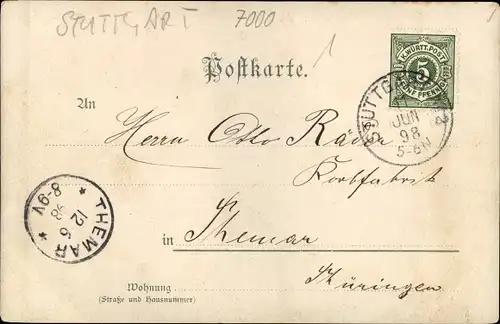 STUTTGART 7000
1
Postkarte.
K. WÜRTT. POST
5
FÜNF PFENNIG
STUTTGART
JUN
98
5-6N
An
Herrn Otto Räder
Korbfabrik
in Themar
Thüringen
THEMAR
12 6
98
8-9V
Wohnung
(Straße und Hausnummer)